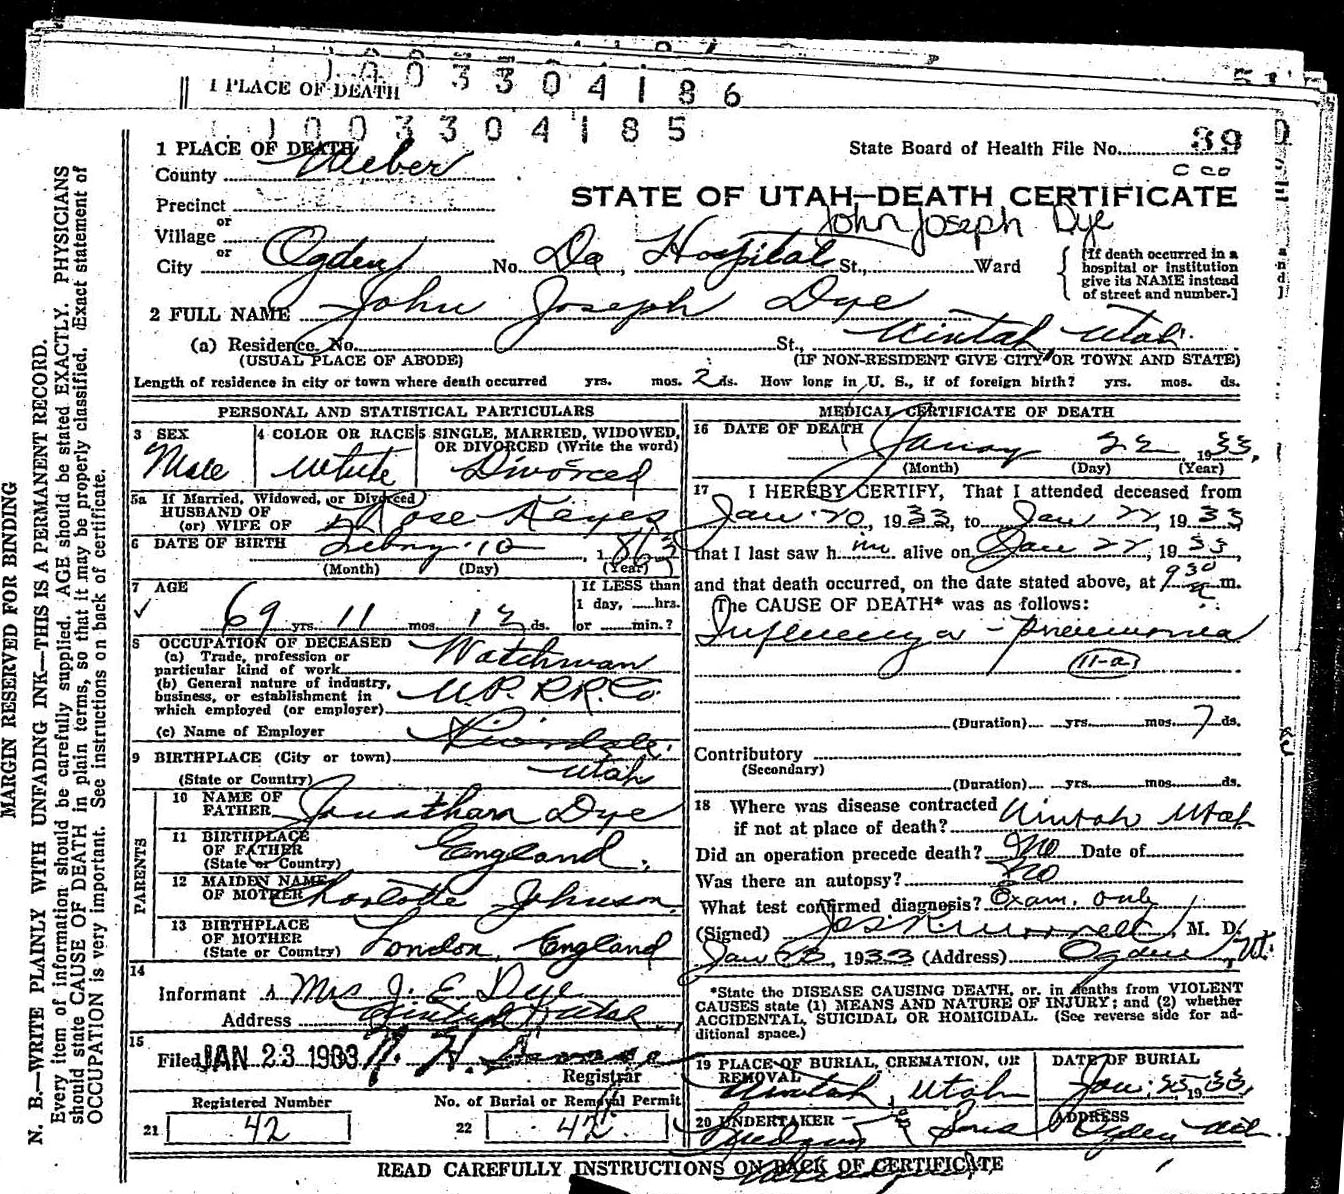 1 PLACE OF DEATH
1003304186
1003304185
1 PLACE OF DEATH
State Board of Health File No. 39
County Weber
Precinct
STATE OF UTAH—DEATH CERTIFICATE
John Joseph Dye
or
Village
or
City Ogden No. Dee Hospital St., Ward
[If death occurred in a hospital or institution give its NAME instead of street and number.]
2 FULL NAME John Joseph Dye
(a) Residence. No. St., Uintah, Utah.
(USUAL PLACE OF ABODE) (IF NON-RESIDENT GIVE CITY OR TOWN AND STATE)
Length of residence in city or town where death occurred yrs. mos. 2 ds. How long in U. S., if of foreign birth? yrs. mos. ds.
PERSONAL AND STATISTICAL PARTICULARS
3 SEX
Male
4 COLOR OR RACE
White
5 SINGLE, MARRIED, WIDOWED,
OR DIVORCED (Write the word)
Divorced
5a If Married, Widowed, or Divorced
HUSBAND OF
(or) WIFE OF Rose Keyes
6 DATE OF BIRTH Febry. 10, 1863
(Month) (Day) (Year)
7 AGE
69 yrs. 11 mos. 12 ds.
If LESS than
1 day, hrs.
or min.?
8 OCCUPATION OF DECEASED
(a) Trade, profession or
particular kind of work Watchman
(b) General nature of industry,
business, or establishment in
which employed (or employer) U.P. RR Co.
(c) Name of Employer
9 BIRTHPLACE (City or town) Riverdale,
(State or Country) Utah
PARENTS
10 NAME OF
FATHER Jonathan Dye
11 BIRTHPLACE
OF FATHER
(State or Country) England.
12 MAIDEN NAME
OF MOTHER Charlotte Johnson.
13 BIRTHPLACE
OF MOTHER
(State or Country) London, England
14
Informant Mrs J. E. Dye
Address Uintah, Utah.
15
Filed JAN 23 1933
Registrar
Registered Number
21 42
No. of Burial or Removal Permit
22 42
MEDICAL CERTIFICATE OF DEATH
16 DATE OF DEATH
January 22, 1933,
(Month) (Day) (Year)
17 I HEREBY CERTIFY, That I attended deceased from
Jan. 20, 1933, to Jan 22, 1933
that I last saw him alive on Jan 22, 1933,
and that death occurred, on the date stated above, at 9 30 a. m.
The CAUSE OF DEATH* was as follows:
Influenza - Pneumonia
11-a
(Duration) yrs. mos. 7 ds.
Contributory
(Secondary)
(Duration) yrs. mos. ds.
18 Where was disease contracted
if not at place of death? Uintah Utah
Did an operation precede death? No Date of
Was there an autopsy? No
What test confirmed diagnosis? Exam. only
(Signed) M. D.
Jan 23, 1933 (Address) Ogden, Ut.
*State the DISEASE CAUSING DEATH, or, in deaths from VIOLENT
CAUSES state (1) MEANS AND NATURE OF INJURY; and (2) whether
ACCIDENTAL, SUICIDAL OR HOMICIDAL. (See reverse side for ad-
ditional space.)
19 PLACE OF BURIAL, CREMATION, OR
REMOVAL
Uintah, Utah
DATE OF BURIAL
Jan. 25, 1933,
20 UNDERTAKER
& Sons
ADDRESS
Ogden Utah.
READ CAREFULLY INSTRUCTIONS ON BACK OF CERTIFICATE
MARGIN RESERVED FOR BINDING
N. B.—WRITE PLAINLY WITH UNFADING INK—THIS IS A PERMANENT RECORD.
Every item of information should be carefully supplied. AGE should be stated EXACTLY. PHYSICIANS
should state CAUSE OF DEATH in plain terms, so that it may be properly classified. Exact statement of
OCCUPATION is very important. See instructions on back of certificate.